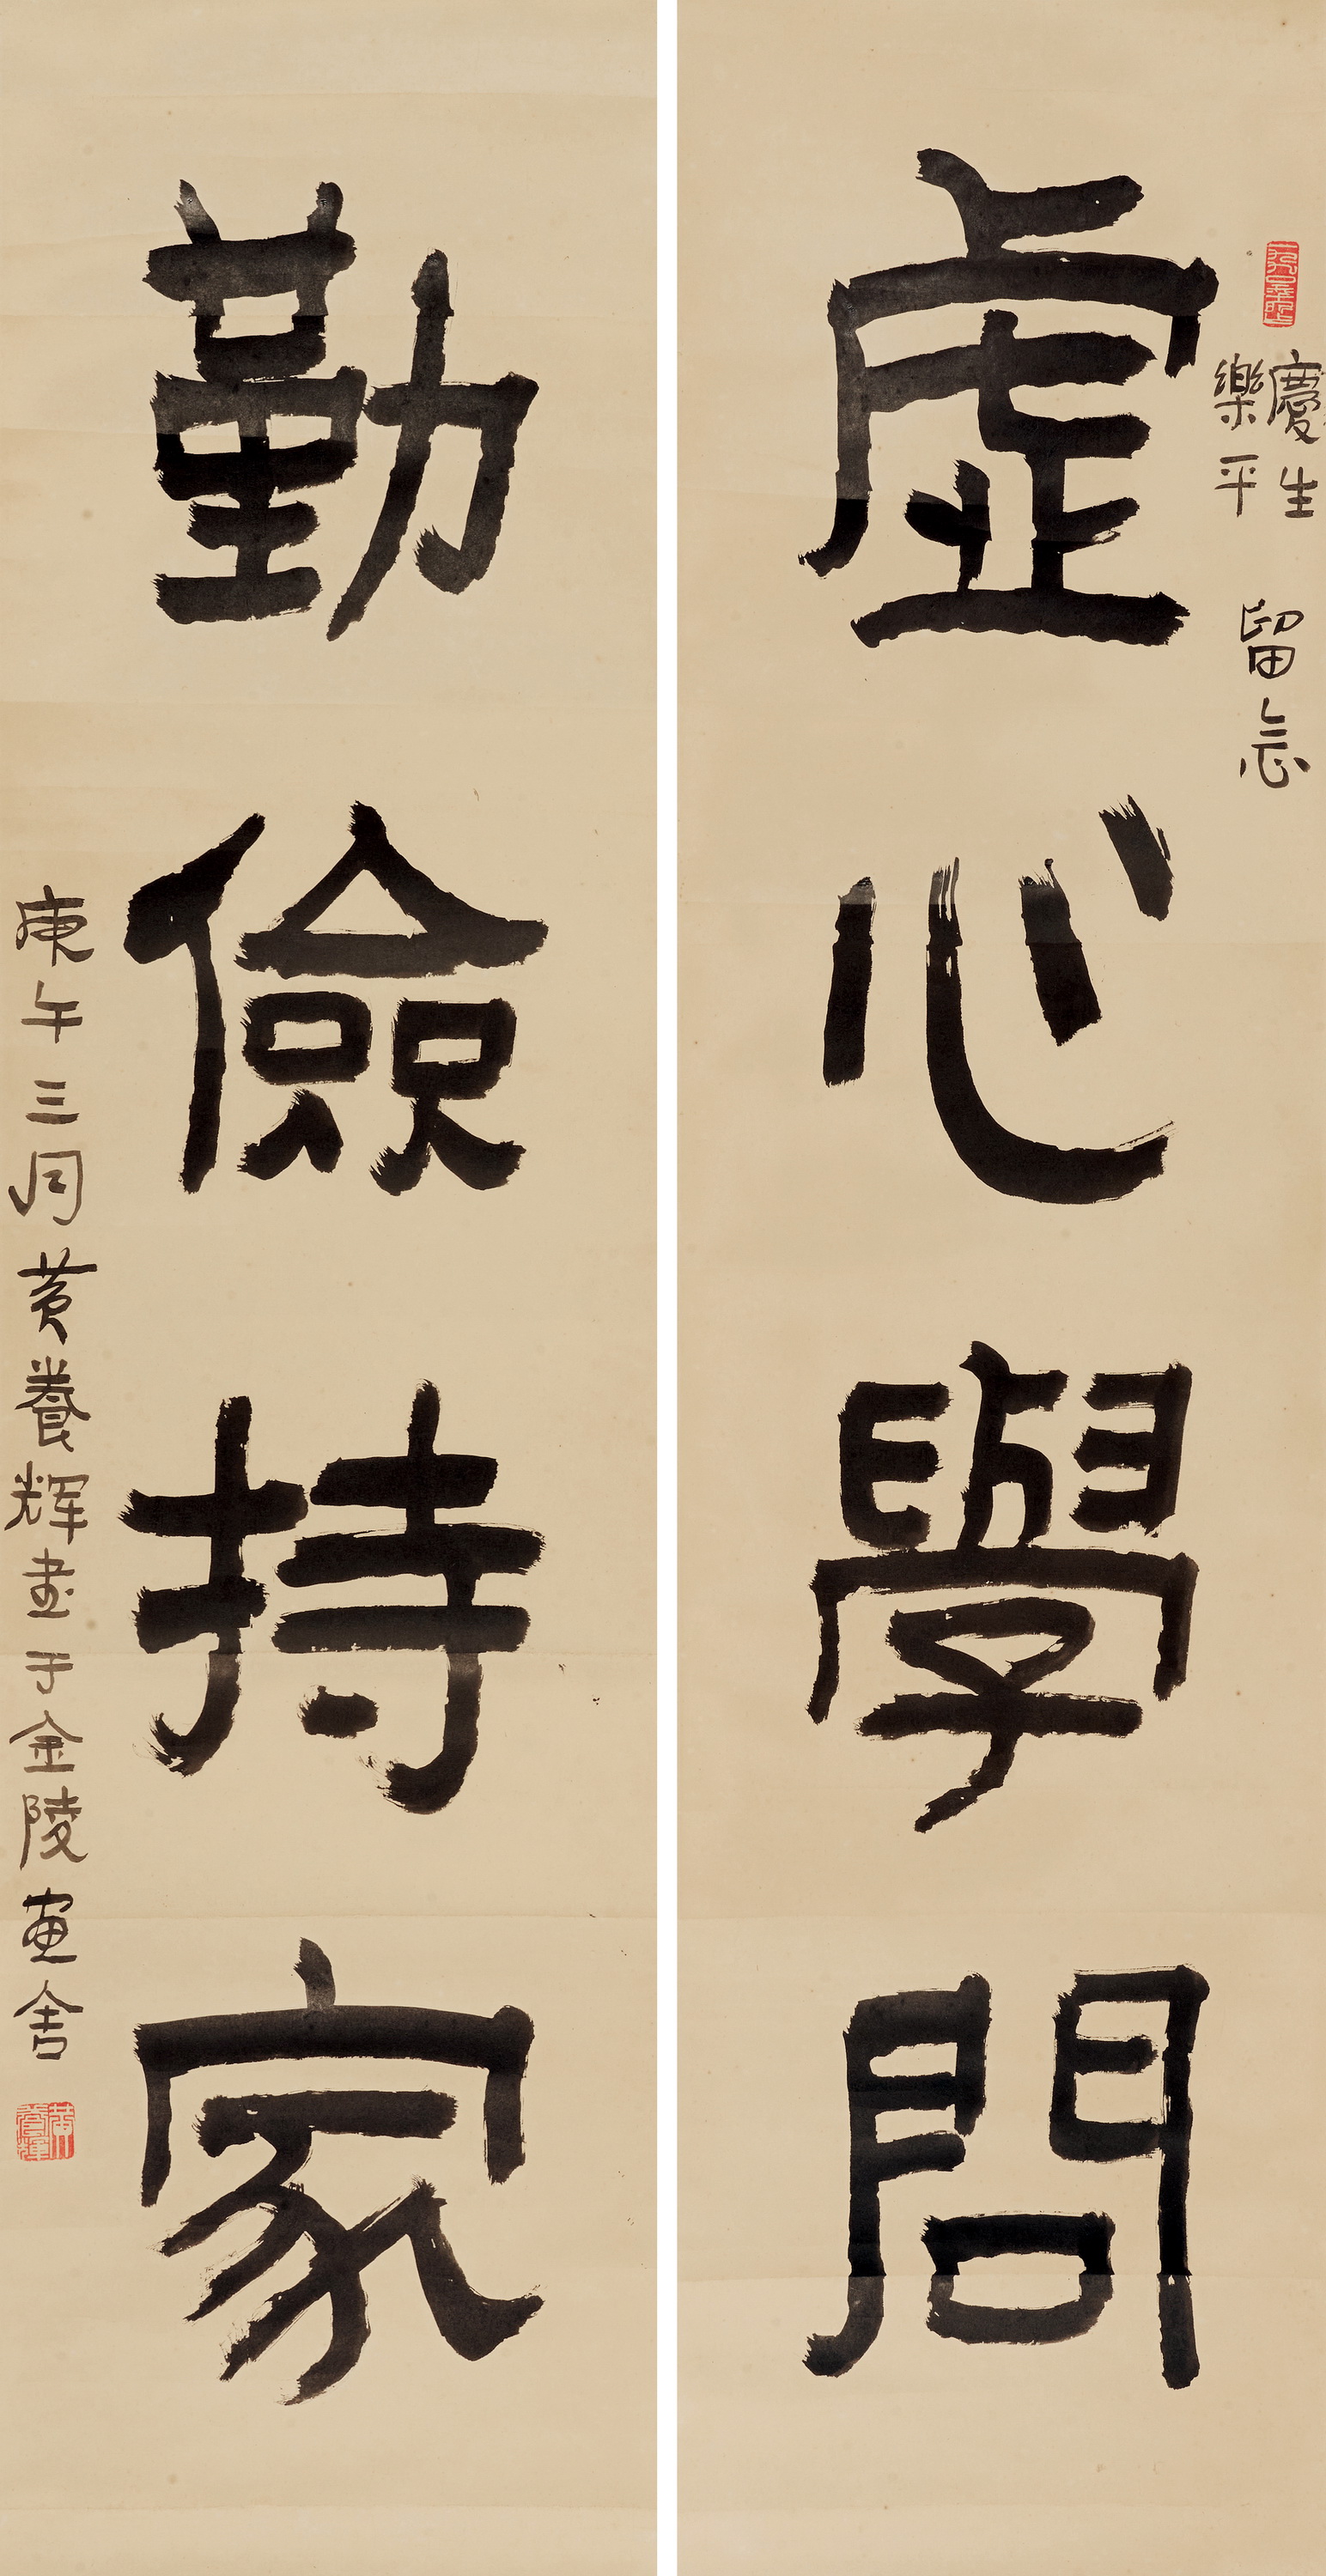 慶生
樂平
留念
虛心學問
勤儉持家
庚午三月黄養輝書于金陵畫舍
黄養輝